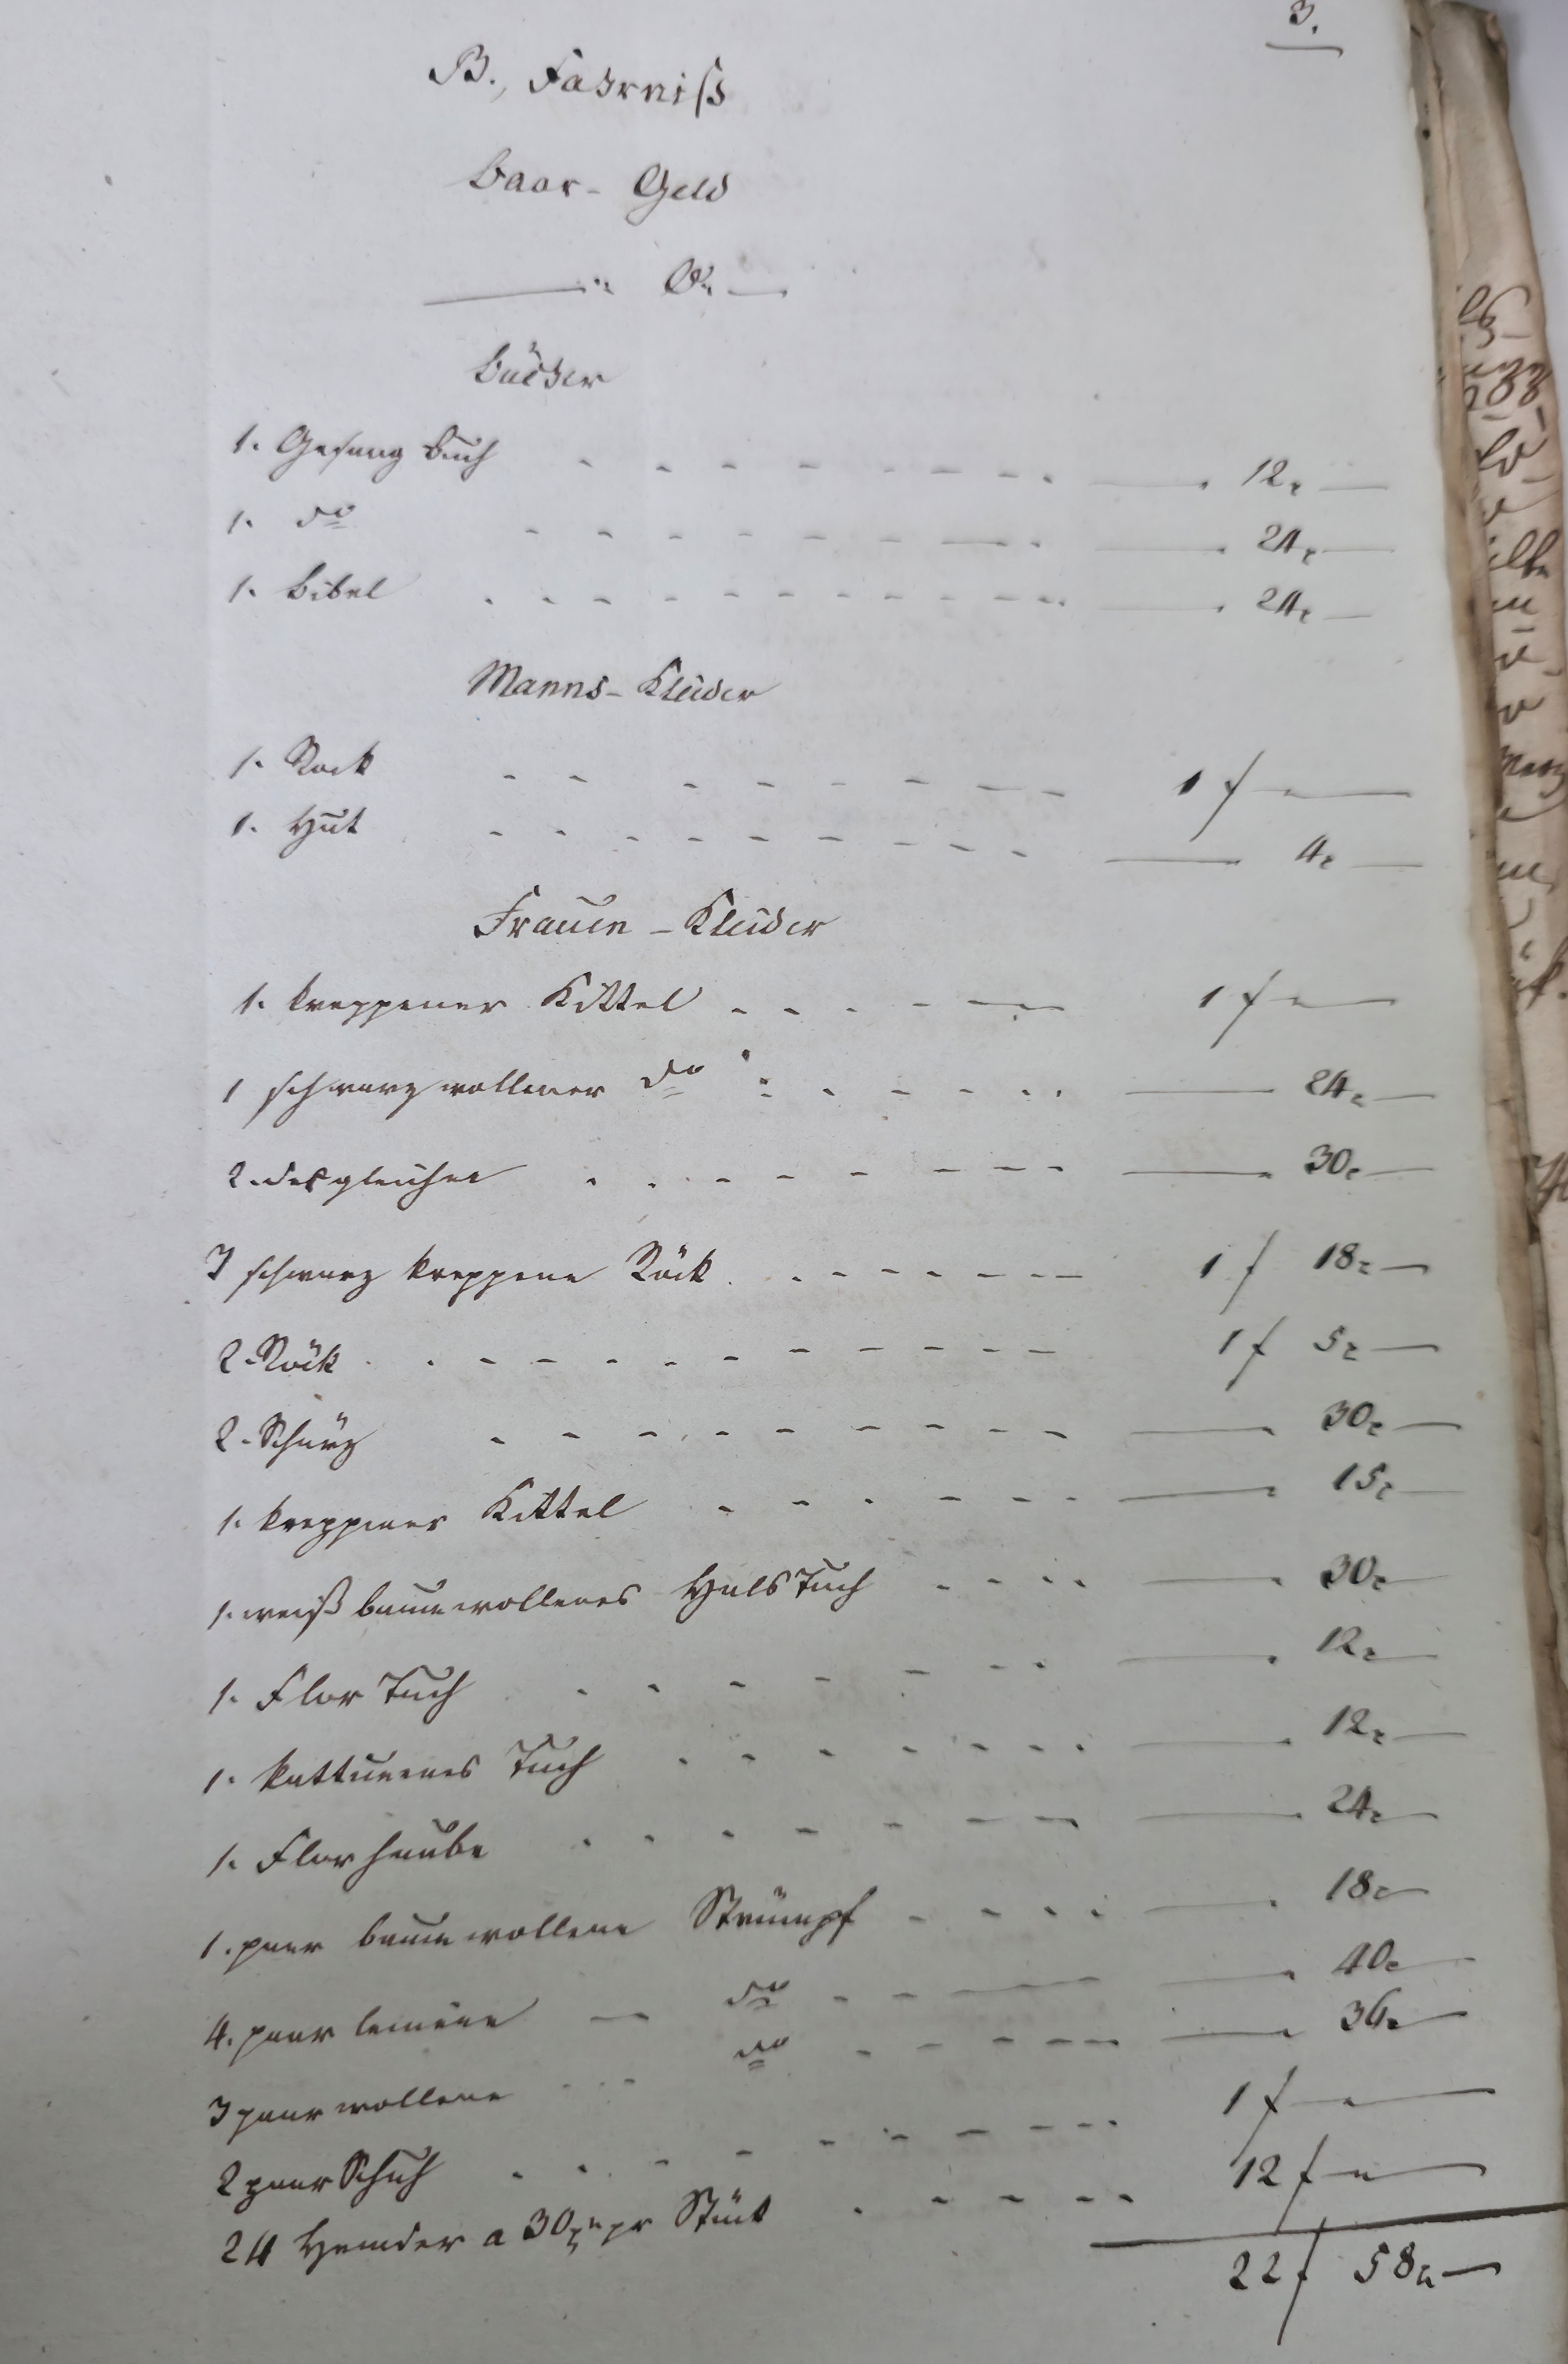 3.
B., Fahrniß
Baar-Geld
— " 0. —
Bücher
1. Gesang Buch - - - - - - - — 12x —
1. do - - - - - - - — 24x —
1. Bibel - - - - - - - — 24x —
Manns-Kleider
1. Rock - - - - - - - 1 f — " —
1. Hut - - - - - - - — 4x —
Frauen-Kleider
1. kreppener Kittel - - - - - 1 f — " —
1 schwarz wollener do - - - - - — 24x —
2. desgleichen - - - - - - - — 30x —
3 schwarz kreppene Röck - - - - - 1 f 18x —
2. Röck - - - - - - - 1 f 5x —
2. Schürz - - - - - - - — 30x —
1. kreppener Kittel - - - - - — 15x —
1. weiß baumwollenes HalsTuch - - - - — 30x —
1. Flor Tuch - - - - - - — 12x —
1. kattunenes Tuch - - - - - - — 12x —
1. Florhaube - - - - - - — 24x —
1. paar baumwollene Strümpf - - - - — 18x —
4. paar leinene — do - - - — 40x —
3 paar wollene - - do - - - — 36x —
2 paar Schuh - - - - - - 1 f — " —
24 Hemder a 30x pr Stück - - - - 12 f — " —
22 f 58x —